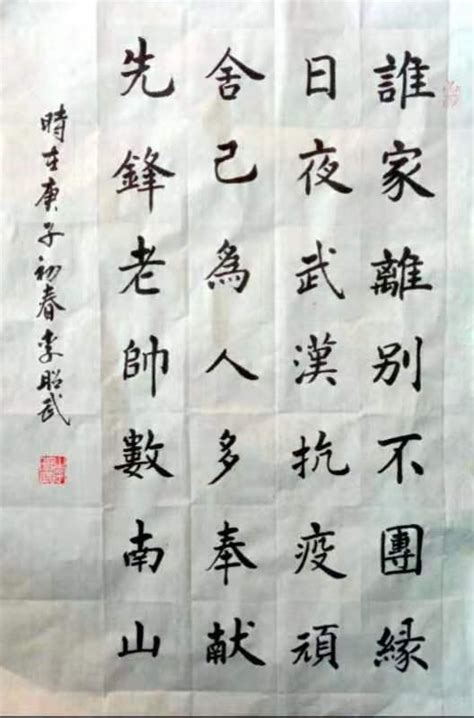 誰家離别不團緣
日夜武漢抗疫頑
舍己為人多奉献
先鋒老帥數南山
時在庚子初春李昭武